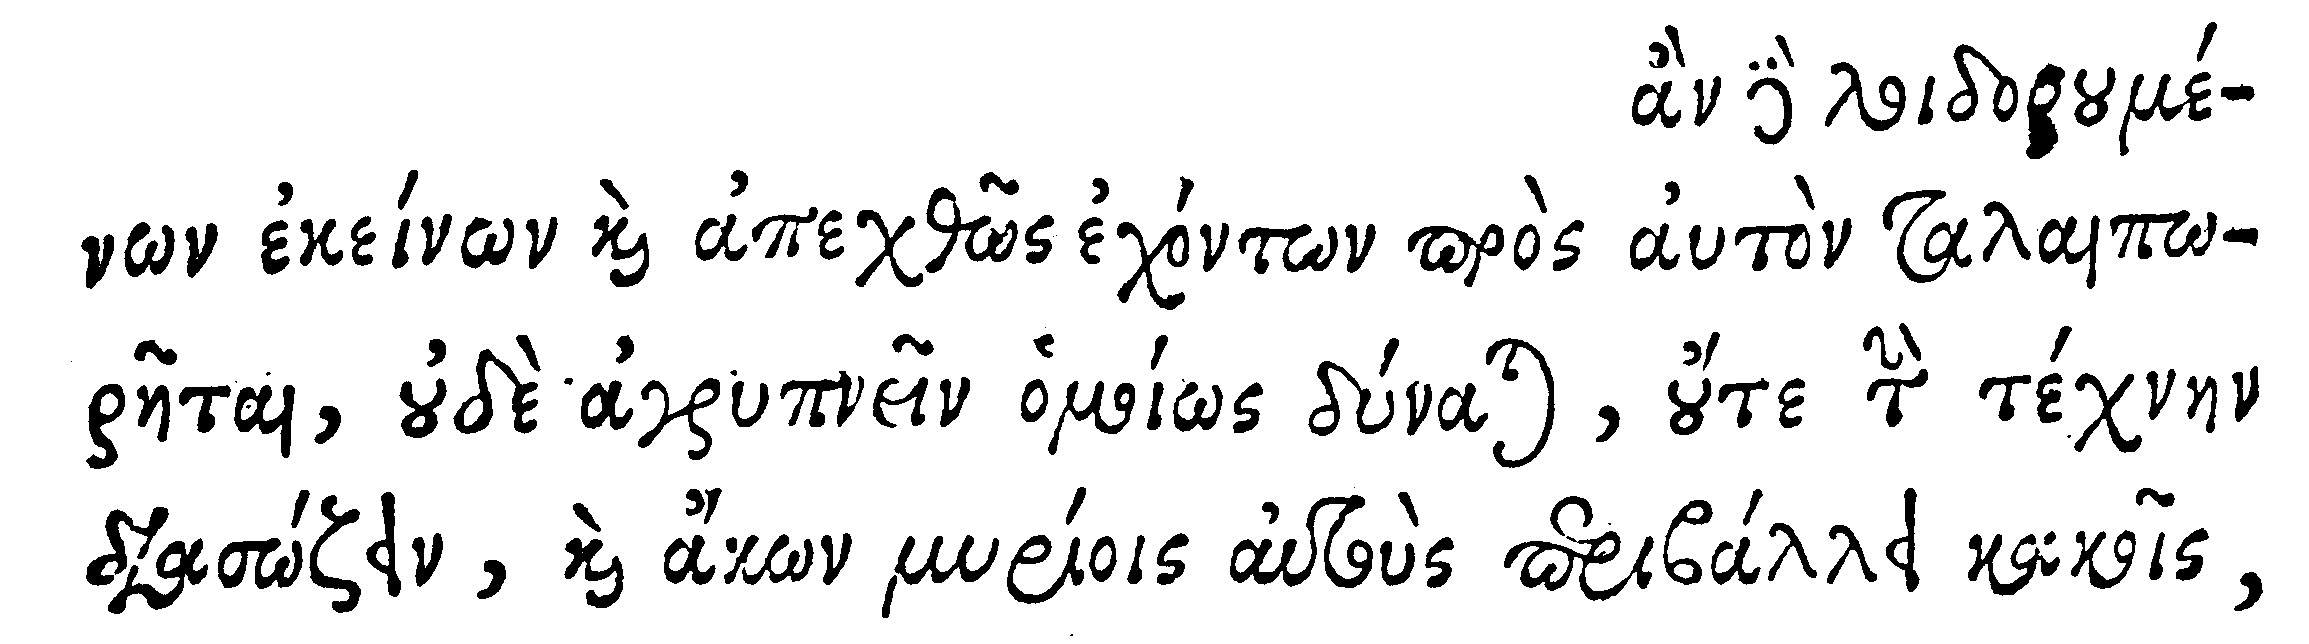 ἂν δὲ λοιδορουμέ-
νων ἐκείνων καὶ ἀπεχθῶς ἐχόντων πρὸς αὐτὸν ταλαιπω-
ρῆται, οὐδὲ ἀγρυπνεῖν ὁμοίως δύναται, οὔτε τὴν τέχνην
διασώζειν, καὶ ἄκων μυρίοις αὐτοὺς περιβάλλει κακοῖς,